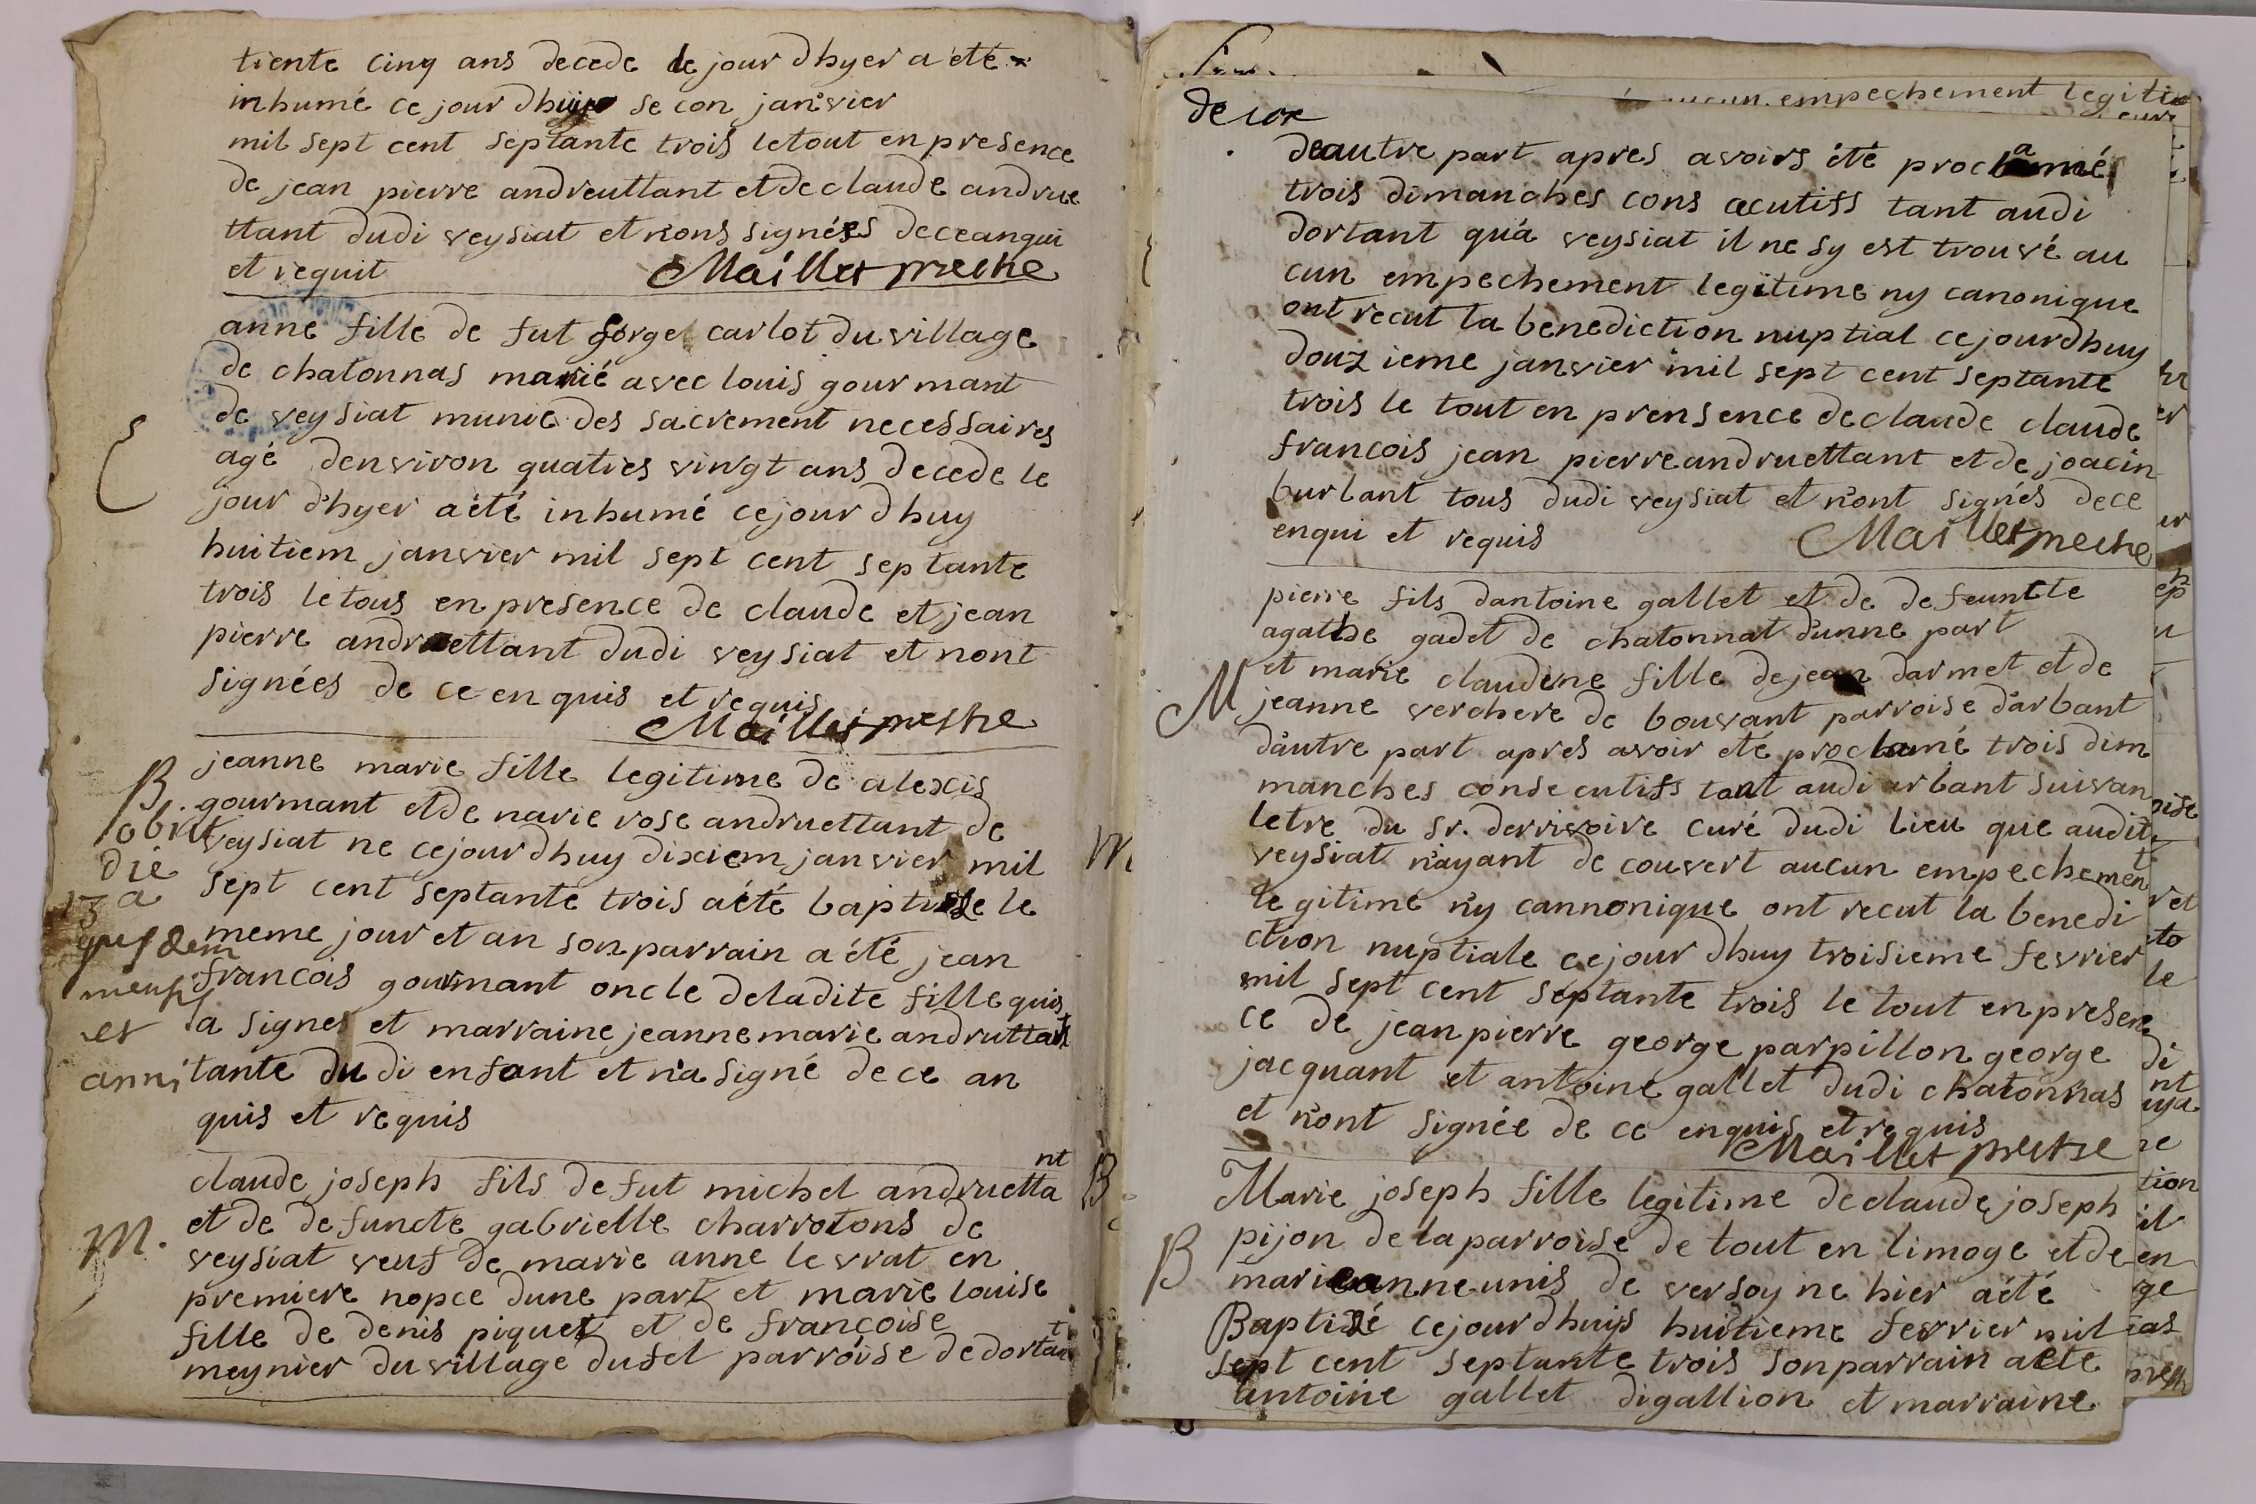 tiente cinq ans decede le jour dhyer a été
inhumé ce jour dhuy se con janvier
mil sept cent septante trois le tout en presence
de jean pierre andreuttant et de claude andrue
ttant dudi veysiat et nons signées de ce anqui
et requit Maillet prestre
anne fille de fut gorge carlot du village
de chatonnas marié avec louis gourmant
de veysiat munie des sacrement necessaires
agé denviron quaties vingt ans decede le
jour d'hyer a été inhumé cejour dhuy
huitiem janvier mil sept cent septante
trois le tous en presence de claude et jean
pierre andruettant dudi veysiat et nont
signées de ce en quis et requis
Maillet prestre
B. jeanne marie fille legitime de alexis
gourmant et de narie rose andruettant de
obiit veysiat ne cejour dhuy dixiem janvier mil
die
13 a sept cent septante trois a été baptisse le
meme jour et an son parrain a été jean
francois gourmant oncle deladite fille quis
et la signes et marraine jeanne marie andruttant
anni tante du di enfant et n'a signé de ce an
quis et requis
claude joseph fils de fut michel andruettant
M. et de defuncte gabrielle charrotons de
veysiat veuf de marie anne le vrat en
premiere nopce dune part et marie louise
fille de denis piquet et de francoise
meynier du village dufel parroise de dortant
empechement legiti
de autre part apres avoirs été proclamé
trois dimanches cons ecutifs tant audi
dortant qu'a veysiat il ne sy est trouvé au
cun empechement legitime ny canonique
ont recut la benediction nuptial cejourdhuy
douzieme janvier mil sept cent septante
trois le tout en prensence de claude claude
francois jean pierre andruettant et de joacin
burlant tous dudi veysiat et n'ont signés de ce
enqui et requis Maillet prestre
pierre fils dantoine gallet et de defeuntte
agathe gadet de chatonnat d'unne part
M et marie claudine fille de jean darmet et de
jeanne verchere de bouvant parroise d'arbant
d'autre part apres avoir eté proclamé trois dim
manches consecutifs tant audi arbant suivan
letre du sr. derrivoire curé dudi lieu que audit
veysiat n'ayant de couvert aucun empechement
legitimé n'y cannonique ont recut la benedi
ction nuptiale cejour dhuy troisieme fevrier
mil sept cent septante trois le tout en presen
ce de jean pierre george parpillon george
jacquant et antoine gallet dudi chatonnas
et n'ont signée de ce enquis et requis
Maillet prestre
Marie joseph fille legitime de claude joseph
B pijon de la parroise de tout en limoge et de
marie anne unis de versoy ne hier a été
Baptisé cejourdhuis huitieme fevrier mil
sept cent septante trois son parrain a ete
antoine gallet digallion et marraine